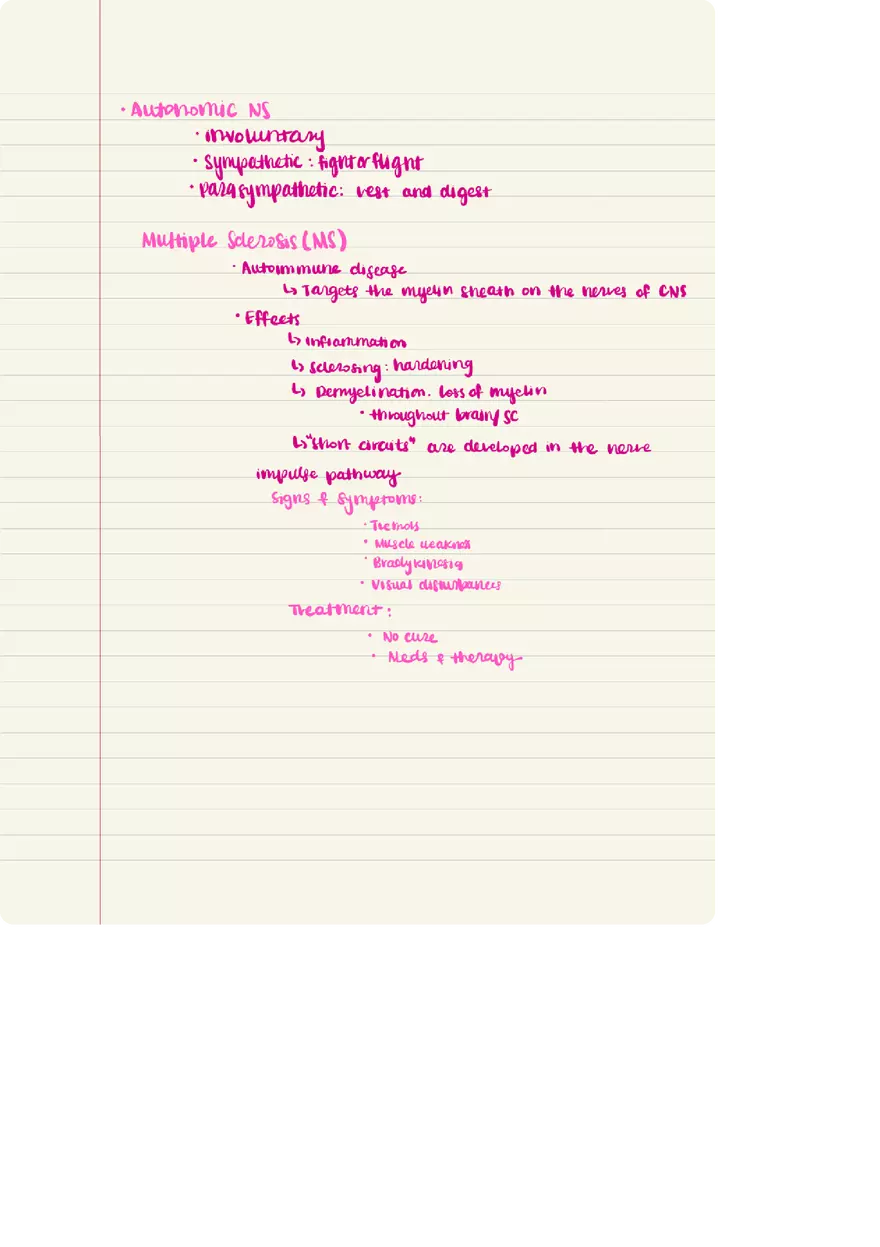 • Autonomic NS
• involuntary
• Sympathetic: fight or flight
• parasympathetic: rest and digest
Multiple Sclerosis (MS)
• Autoimmune disease
↳ Targets the myelin sheath on the nerves of CNS
• Effects
↳ inflammation
↳ Sclerosing: hardening
↳ Demyelination. loss of myelin
• throughout brain/SC
↳ "short circuits" are developed in the nerve
impulse pathway
Signs & Symptoms:
• Tremors
• Muscle weakness
• Bradykinesia
• Visual disturbances
Treatment:
• No cure
• Meds & therapy